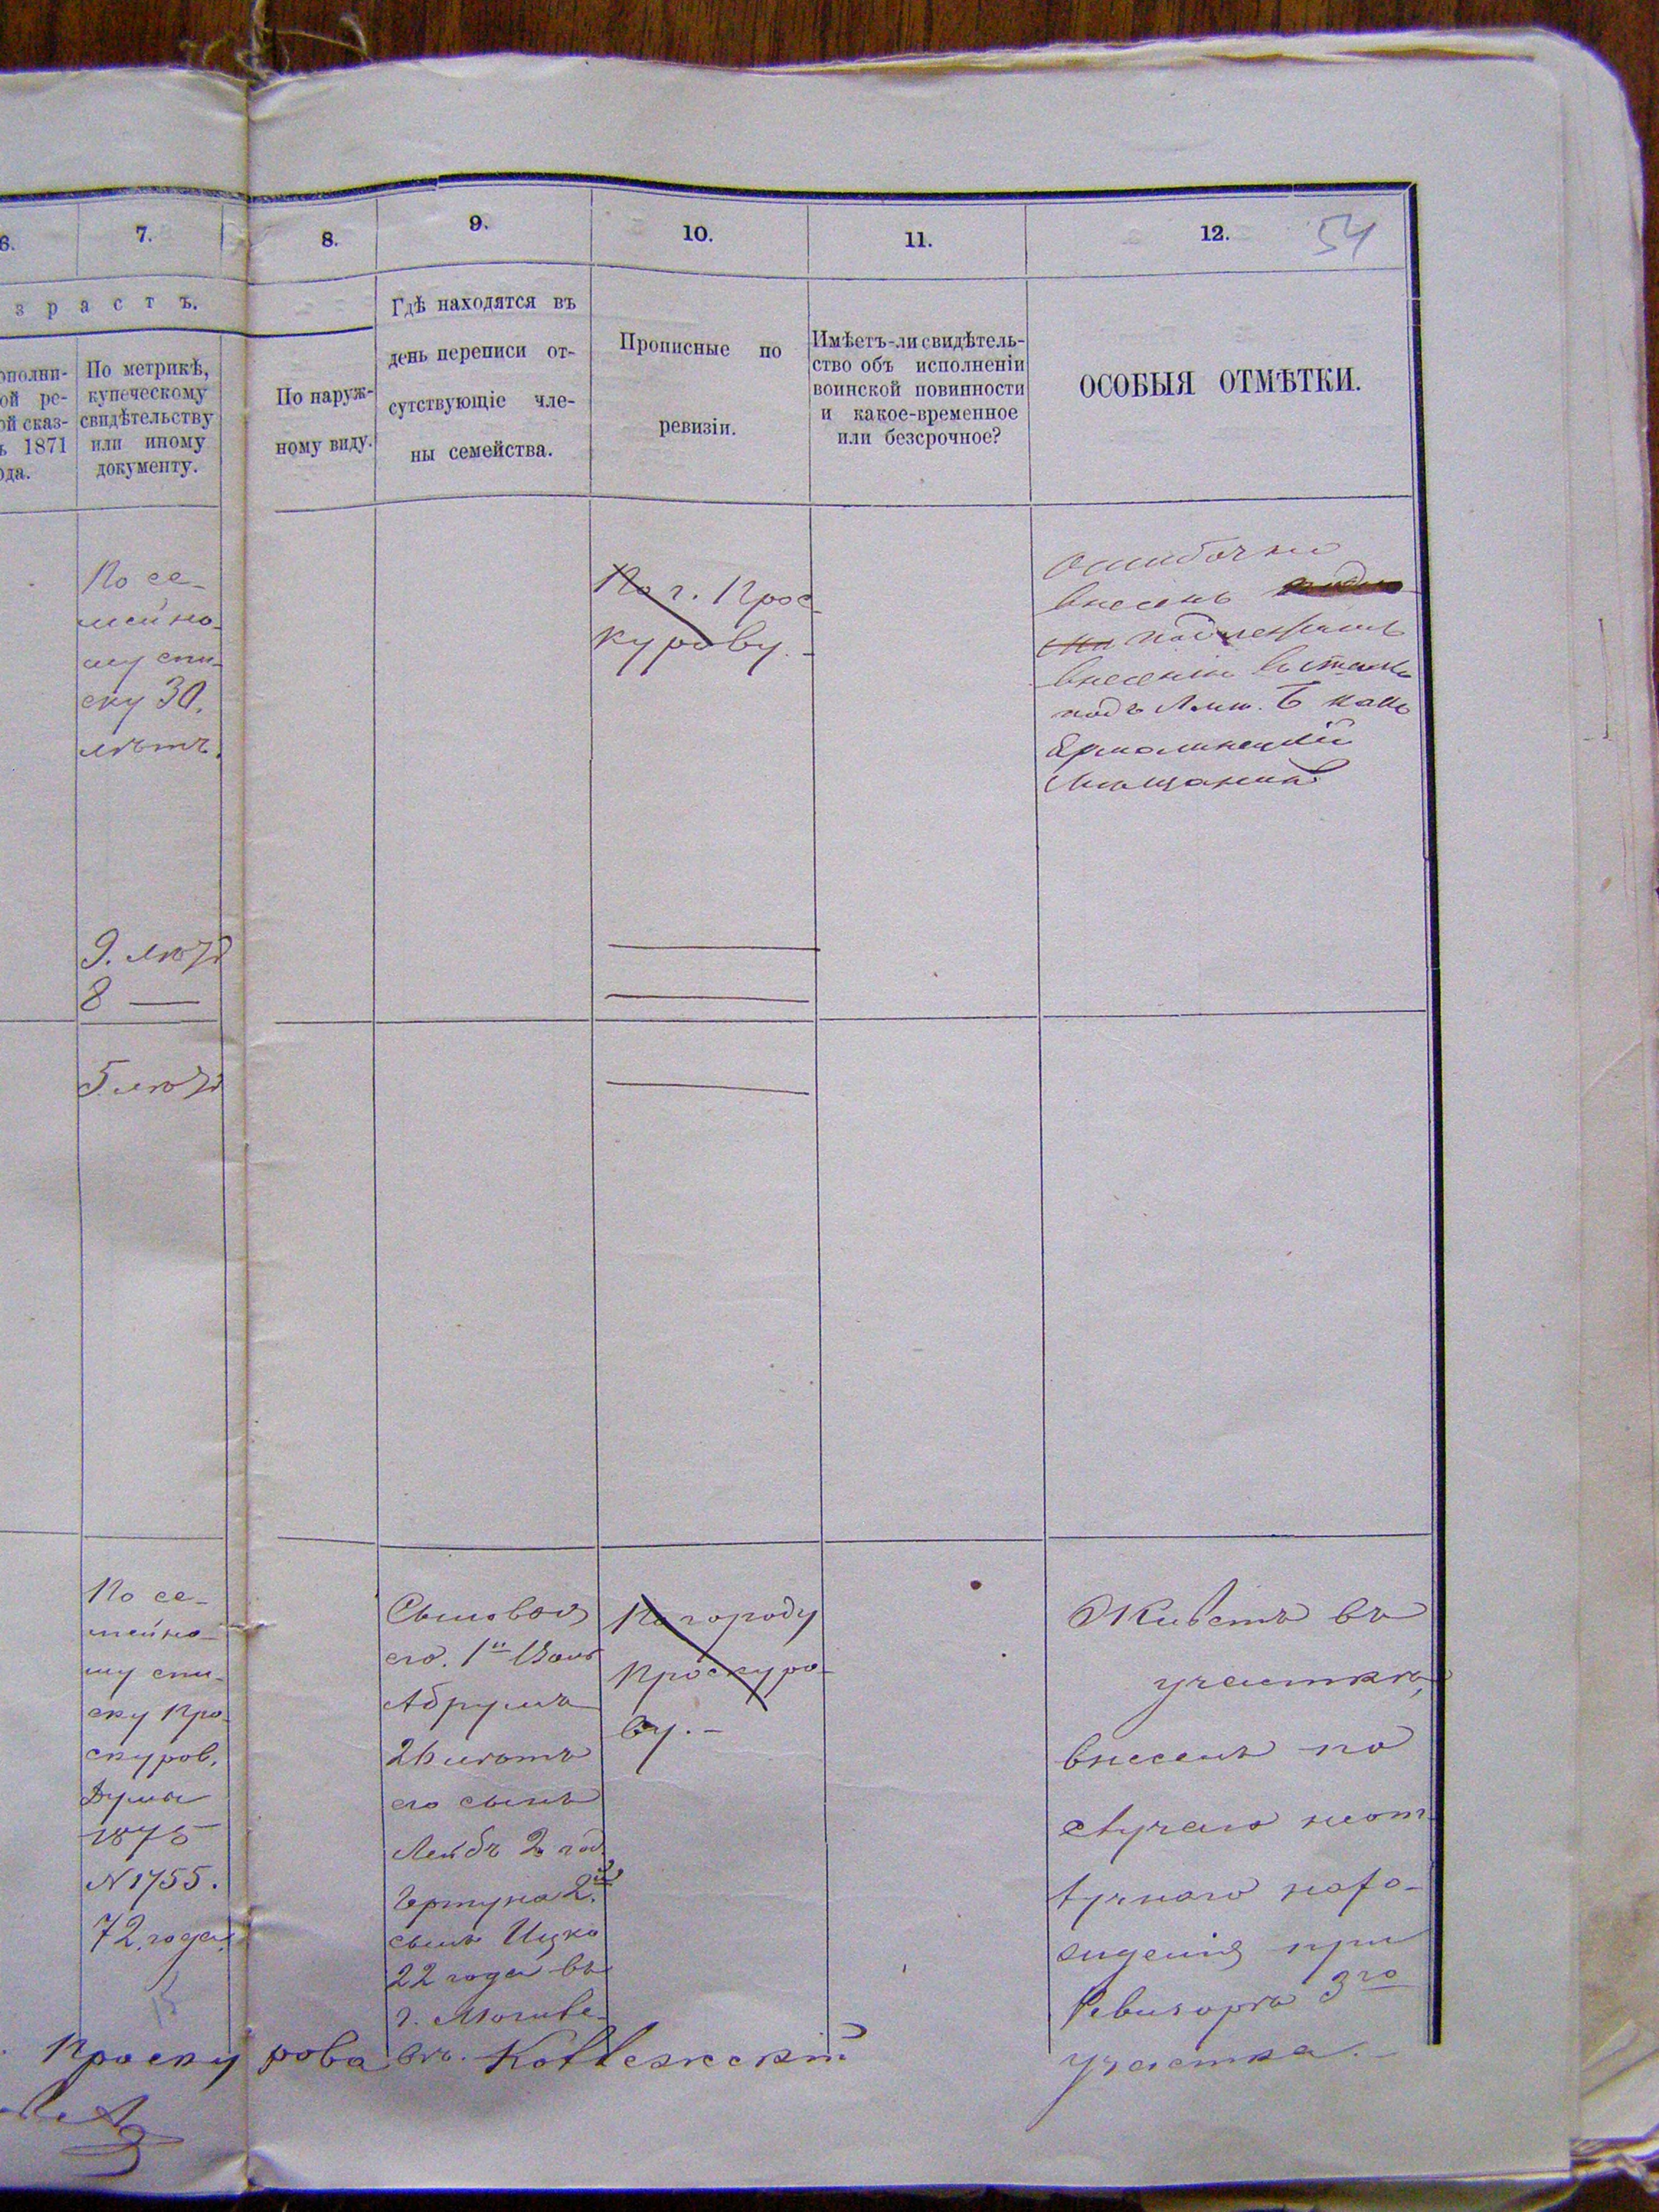 6.
7.
8.
9.
10.
11.
12.
54
з р а с т ъ.
ополни-
ой ре-
ой сказ-
ъ 1871
ода.
По метрикѣ,
купеческому
свидѣтельству
или иному
документу.
По наруж-
ному виду.
Гдѣ находятся въ
день переписи от-
сутствующіе чле-
ны семейства.
Прописные по
ревизіи.
Имѣетъ-ли свидѣтель-
ство объ исполненіи
воинской повинности
и какое-временное
или безсрочное?
ОСОБЫЯ ОТМѢТКИ.
По се-
мейно-
му спи-
ску 30.
лѣтъ.
По г. Прос-
курову.-
Ошибочно
внесенъ
подлежитъ
внесенію
подъ Лит. Б какъ
Ермолинецкій
мѣщанинъ
9. лѣтъ
8 —
5 лѣтъ
По се-
мейно-
му спи-
ску Про-
скуров.
Думы
1875
№ 1755.
72. года.
Сыновья
его. 1й
Абрумъ
26 лѣтъ
его сынъ
Лейбъ 2 год.
2й
сынъ Ицко
22 года въ
г. Могиле-
вѣ.
По городу
Проскуро-
ву.-
Живетъ въ
участкѣ,
внесенъ по
случаю неот-
лучнаго нахо-
жденія при
Ревизорѣ 3го
участка.-
Проску рова